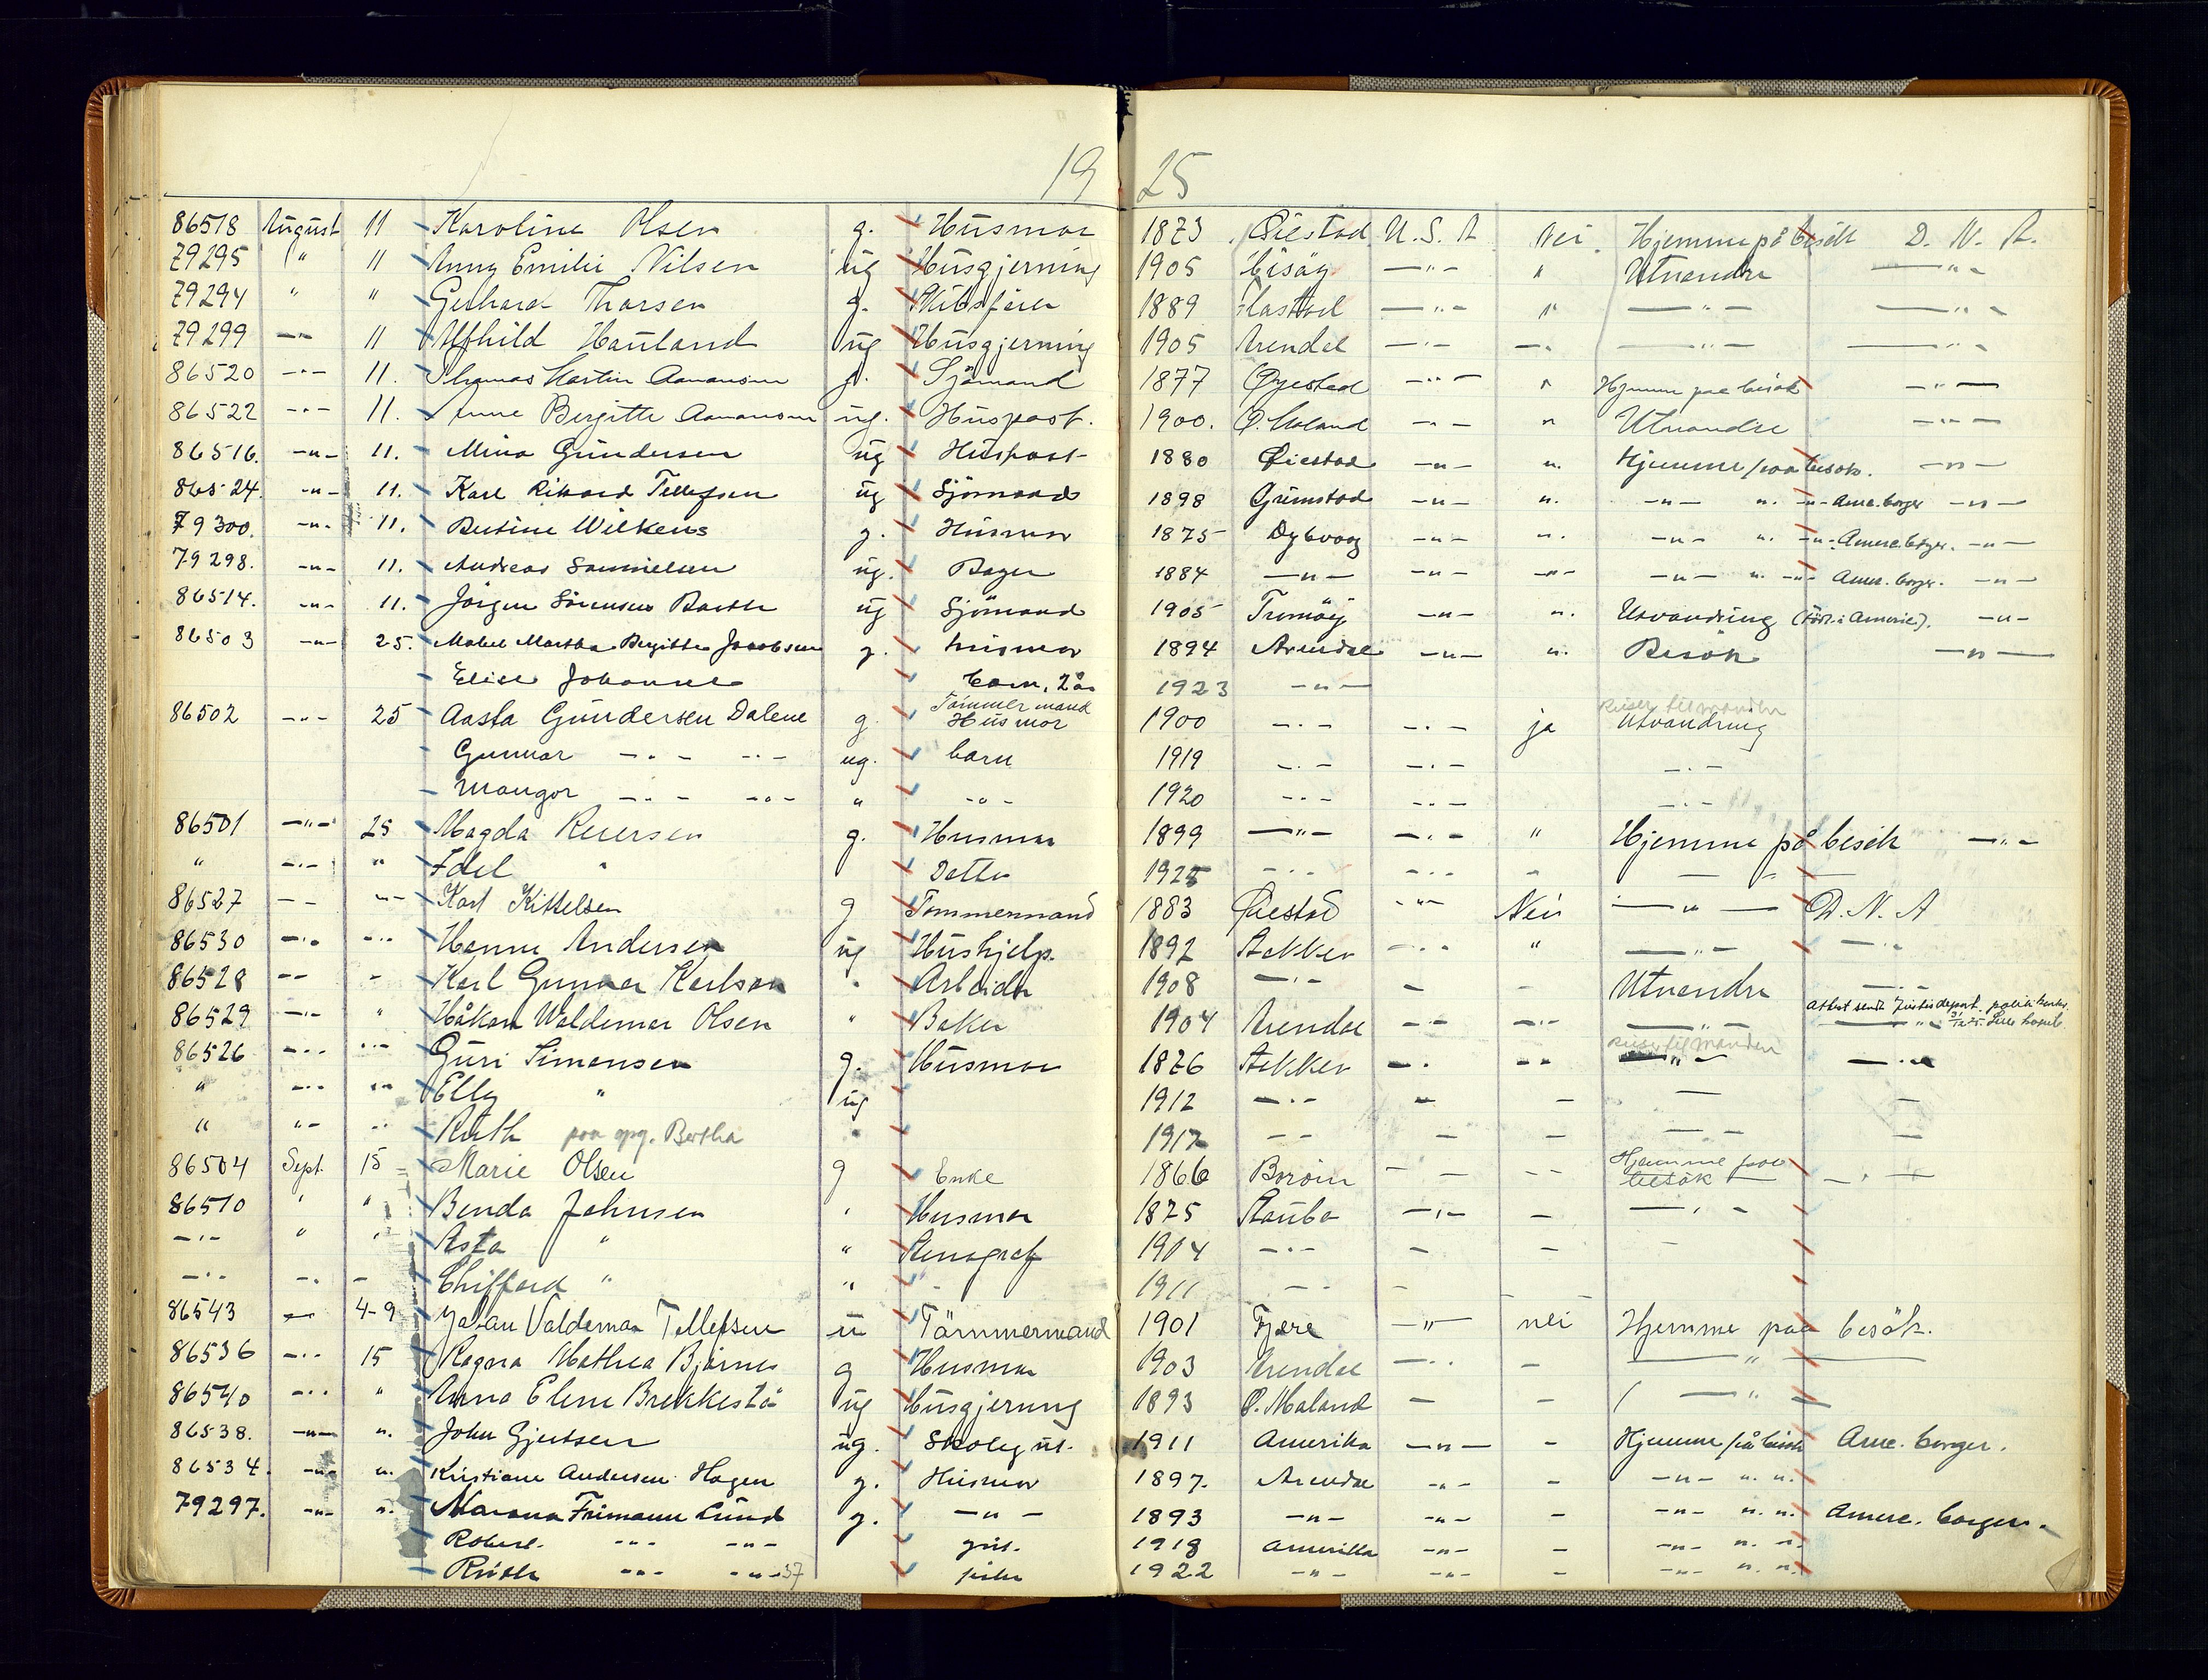 19 25
86518 August 11 Karoline Olsen g. Husmor 1873 Øiestad U.S.A Nei Hjemme på besøk D. N. A.
79295 " 11 Anny Emilie Nilsen ug Husgjerning 1905 Hisøy —"— " Utvandre —"—
79294 " " Gerhard Thorsen g. Skibsfører 1889 Hastad —"— " —"— —"—
79299 —"— 11 Alfhild Hauland ug Husgjerning 1905 Arendal —"— —"— —"— —"—
86520 —"— 11. Thomas Martin Aanonsen g. Sjömand 1877 Øyestad —"— " Hjemme paa besök —"—
86522 —"— 11. Anne Birgitte Aanonsen ug. Huspost. 1900. Ø. Moland —"— " Utvandre —"—
86516. —"— 11. Mina Gundersen ug Huspost 1880 Øiestad —"— ". Hjemme paa besök. —"—
86524. —"— 11. Karl Rikard Tellefsen ug Sjömand 1898 Grimstad —"— ". —"— ". —"— Ame. borger —"—
79300. —"— 11. Bertine Wilkens g. Husmor 1875 Dybvaag —"— ". —"— ". —"— Amerc. borger. —"—
79298. —"— 11. Andreas Samuelsen ug. Bager 1884 —"— —"— —"— —"— ". —"— Amer. borger. —"—
86514. —"— 11. Jörgen Sörensen Barth ug Sjömand 1905 Tromöy —"— ". Utvandring (född i Amerie). —"—
86503 —"— 25. Mabel Martha Birgitte Jacobsen g. husmor 1894 Arendal —"— ". Besök —"—
Elise Johanne barn, 2 år 1923 —"—
86502 —"— 25 Aasta Gundersen Dalene g. Tömmermand Husmor 1900 —"— —"— ja Reiser til manden Utvandring
Gunnar —"— —"— ug. barn 1919 —"— —"— —"—
Mangor —"— —"— " —"— 1920 —"— —"— —"—
86501 —"— 25 Magda Reiersen g. Husmor 1899 —"— —"— " Hjemme på besök —"—
" —"— " Edel " Datter 1925 —"— —"— " — " —
86527 —"— —"— Karl Kittelsen g Tømmermand 1883 Øiestad —"— Nei —"— D. N. A
86530 —"— —"— Hanna Andersen ug Hushjelp. 1892 Stokken —"— " —"— —"—
86528 —"— — Karl Gunnar Karlson " Arbeider 1908 —"— — — Utvandre —"—
86529 —"— " Håkon Waldemar Olsen " Baker 1904 Arendal —"— —"— —"— Attest sendt Justisdepart.
86526 —"— —"— Guri Simonsen g. Husmor 1876 Stokken —"— —"— Reiser til manden —"— —"—
" —"— —"— Elly " ug 1912 —"— — — — —
" "— —"— Ruth paa opg. Bertha " 1917 — — — — — — —
86504 Sept. 15 Marie Olsen g Enke 1866 Boröen — — — — Hjemme paa besök —"—
86510 " " Benda Johnsen " Husmor 1875 Staubø —"— — —"—
—"— " " Asta " " Stenograf 1904 —"— — — —
—"— —"— — Chifford " " — 1911 — — —
86543 —"— 4-9 Johan Valdemar Tellefsen u Tömmermand 1901 Fjære —"— nei Hjemme paa besök.
86536 —"— 15 Ragna Mathea Bjørnes g Husmor 1903 Arendal —"— — —"—
86540 —"— " Anna Elene Brekkestø ug Husgjerning 1893 Ø. Moland — — —"—
86538. —"— ". John Gjertsen ug. Skolegut. 1911 Amerika —"— — Hjemme på besök Ame. borger.
86534. —"— ". Kristiane Andersen Hagen g. Husmor 1897. Arendal —"— — —"— ". ".
79297. —"— ". Marana Frimann Lund g. —"— 1893 —"— —"— — —"— ". ". Amerc. borger.
Robert. —"— —"— gut. 1918 Amerika —"— — —"— ". ".
Ruth —"— —"— 37 pike 1922 —"— —"— — —"— ". ".